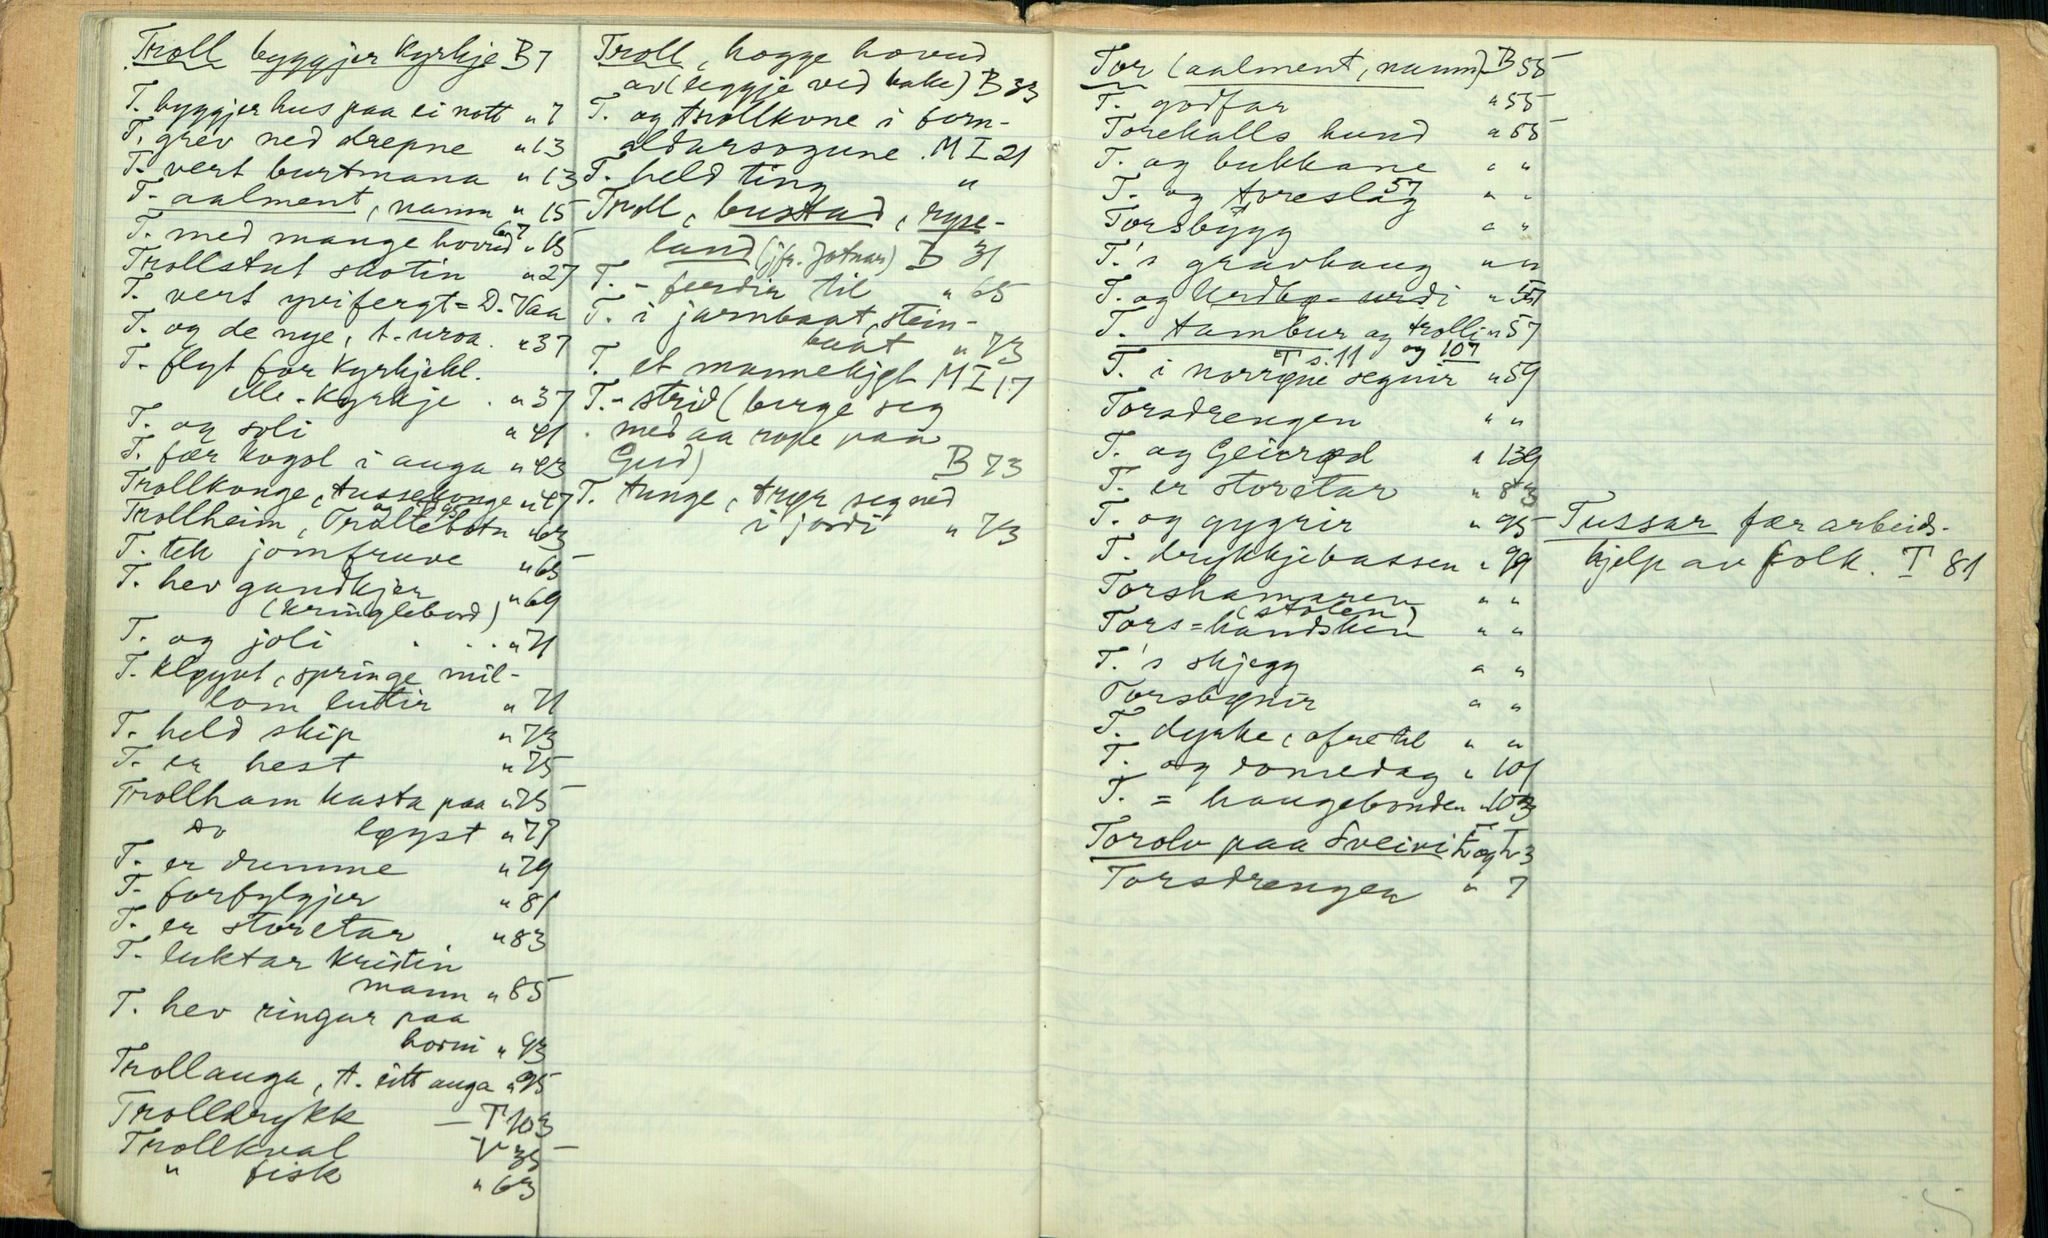 Troll byggjer kyrkje B 7
T. byggjer hus paa ei nott " 7
T. grev ned drepne " 13
T. vert burtmana " 13
T. aalment, namn " 15
T. med mange hovud 67 " 15
Trollstut skotin " 27
T. vert yvifergt = D. Vaa
T. og de nye, t. uroa. " 37
T. flyt for kyrkjekl.
elle - kyrkje . " 37
T. og soli " 41
T. fær kogol i auga " 43
Trollkonge, tussekonge " 47
Trollheim, Trollebotn " 63
T. tek jomfruve " 65
T. hev gandkjer " 69
(kringlebord)
T. og joli . . . " 71
T. kløyvt, springe mil-
lom lutir " 71
T. held skip " 73
T. er hest " 75
Trollham kasta paa " 75
do løyst " 77
T. er dumme " 79
T. forfylgjer " 81
T. er storetar " 83
T. luktar kristin
mann " 85
T. hev ringar paa
horni " 93
Trollauga, t. eitt auga " 95
Trolldrykk — T 103
Trollkval V 35
" fisk " 63
Troll, hogge hovud
av (leggje ved bake) B 33
T. og trollkone i forn-
aldarsogune. M I 21
T. held ting "
Troll, bustad, ryse-
land (jfr. Jotnar) B 31
T. - ferdir til " 65
T. i jarnbaat, stein-
baat " 73
T. et mannekjøt M I 17
T. - strid (berge seg
med aa rope paa
Gud) B 73
T. tunge, trør seg ned
i jordi " 73
Tor (aalment, namn) B 55
T. godfar " 55
Torekalls hund " 55
T. og bukkane " "
T. og toreslag 57 " "
Torsbygg " "
T.'s gravhaug " "
T. og Urdbø-urdi " 57
T. tambur og trolli " 57
T s. 11 og 107
T. i norrøne segnir " 59
Torsdrengen " "
T. og Geirrød " 139
T. er storetar " 83
T. og gygrir " 95
T. drykkjebassen " 99
Torshamaren " "
(stolen)
Tors = handsken " "
T.'s skjegg " "
Torsbønir " "
T. dyrke, ofre til " "
T. og domedag " 101
T. = haugebonden " 103
Torolv paa Sveivi T og V 3
Torsdrengen " 7
Tussar fær arbeids-
hjelp av folk. T 81